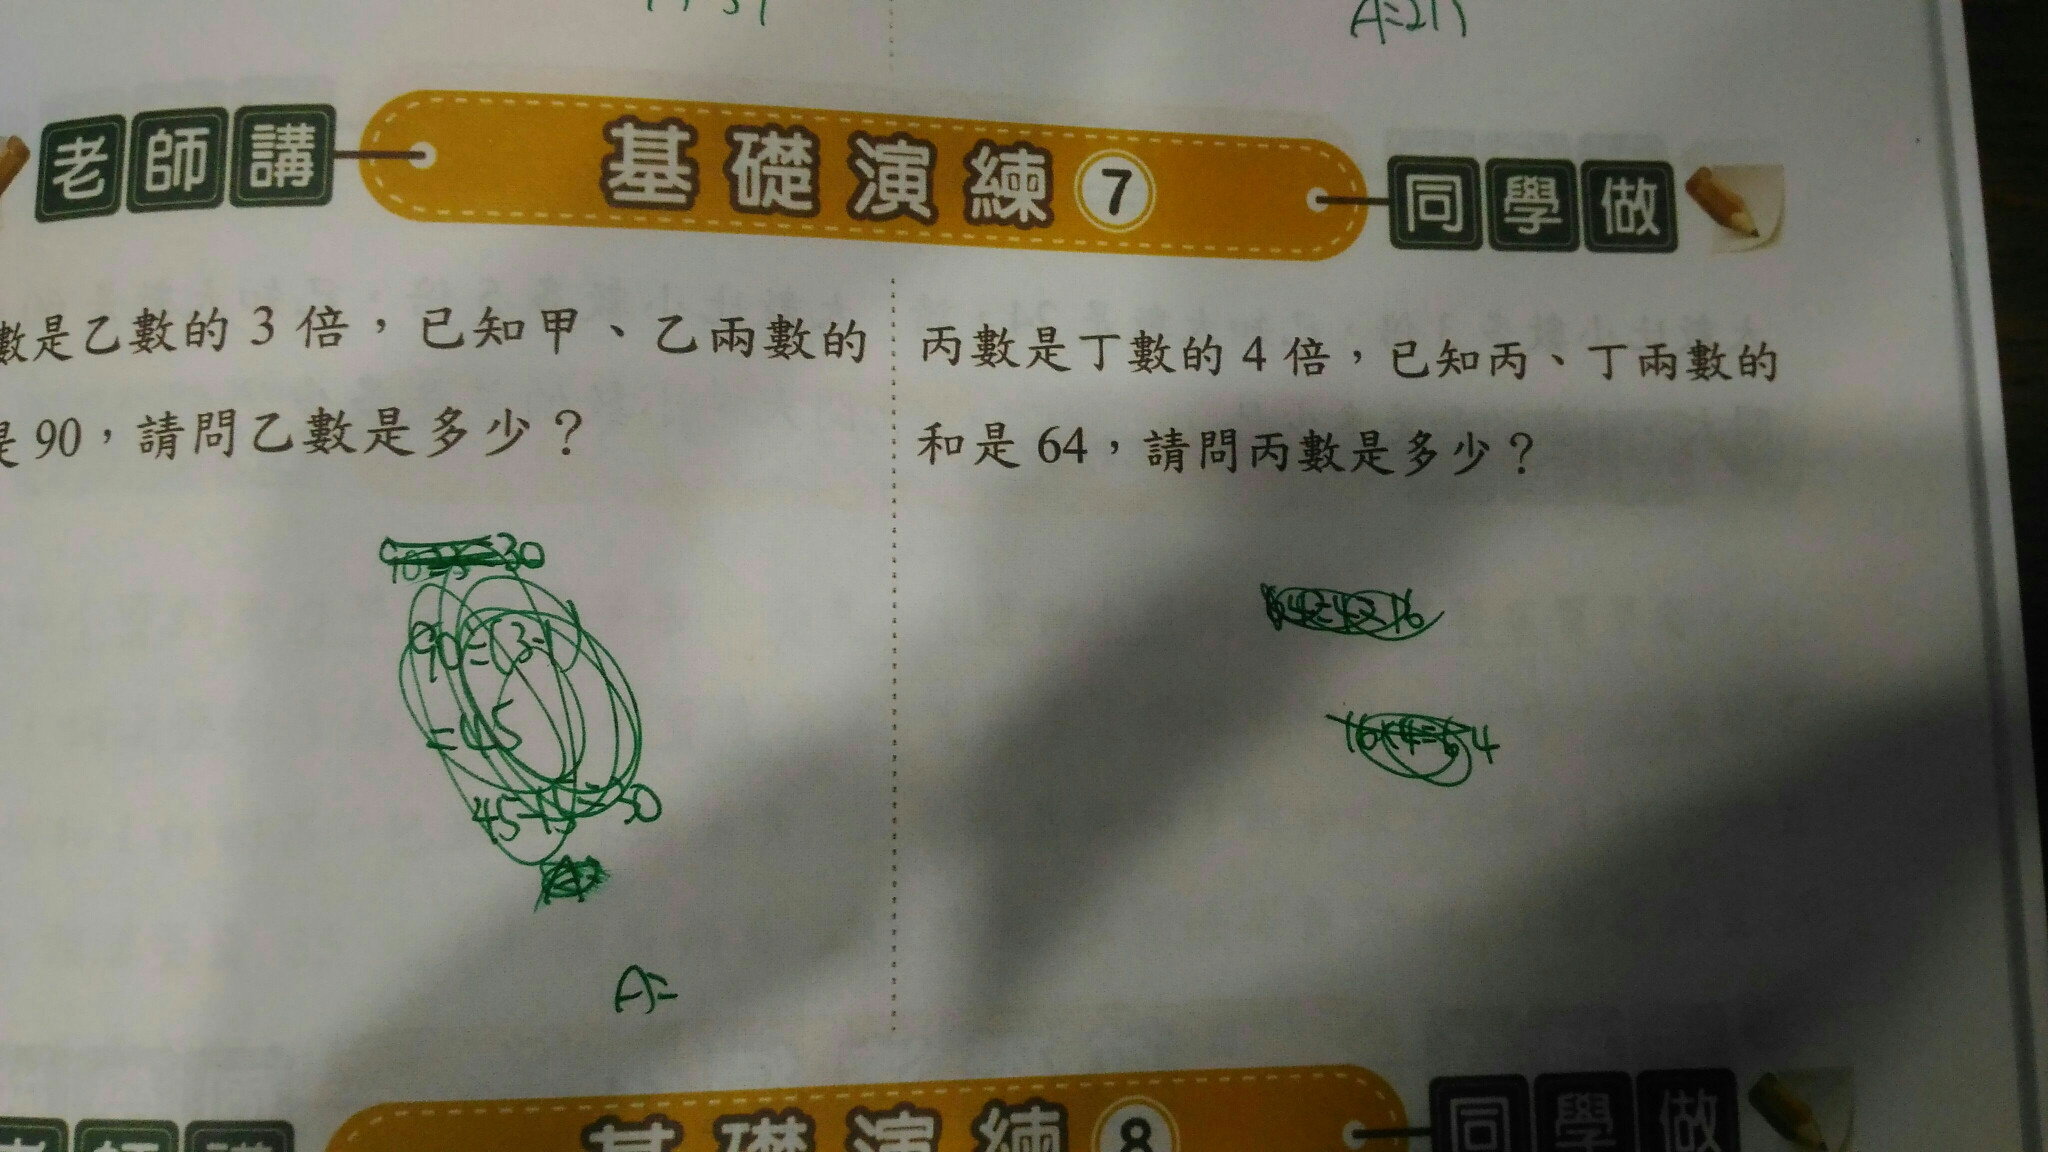 A=211
老師講 基礎演練 7 同學做
數是乙數的 3 倍，已知甲、乙兩數的
是 90，請問乙數是多少？
90÷3=30
90÷(3-1)
=45
A=
丙數是丁數的 4 倍，已知丙、丁兩數的
和是 64，請問丙數是多少？
64÷4=16
16×4=64
老師講 基礎演練 8 同學做